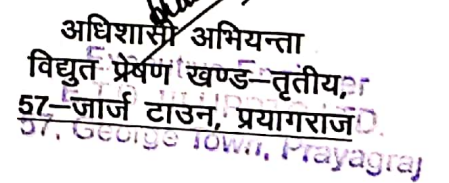 अधिशासी अभियन्ता
विद्युत प्रेषण खण्ड–तृतीय,
57–जार्ज टाउन, प्रयागराज
57, George Town, Prayagraj